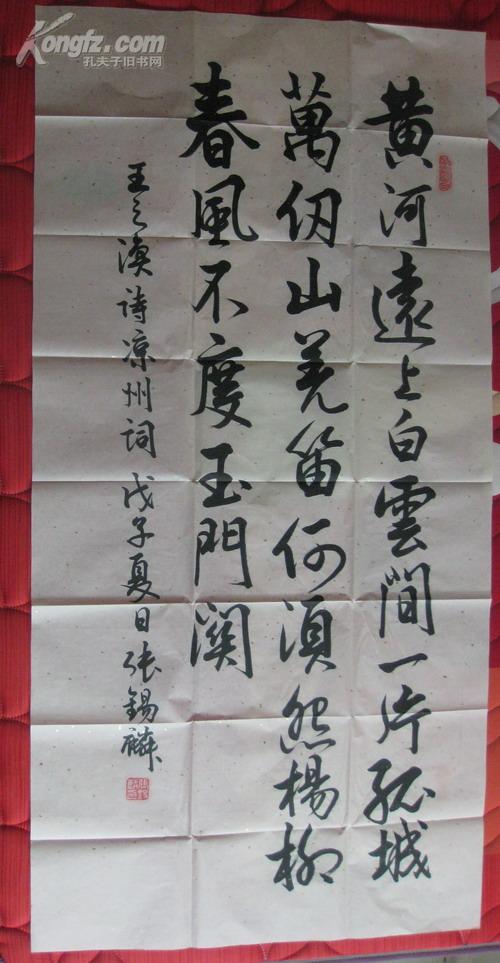 Kongfz.com
孔夫子旧书网
黄河遠上白雲間一片孤城
萬仞山羌笛何須怨楊柳
春風不度玉門関
王之渙詩凉州詞 戊子夏日張錫麟